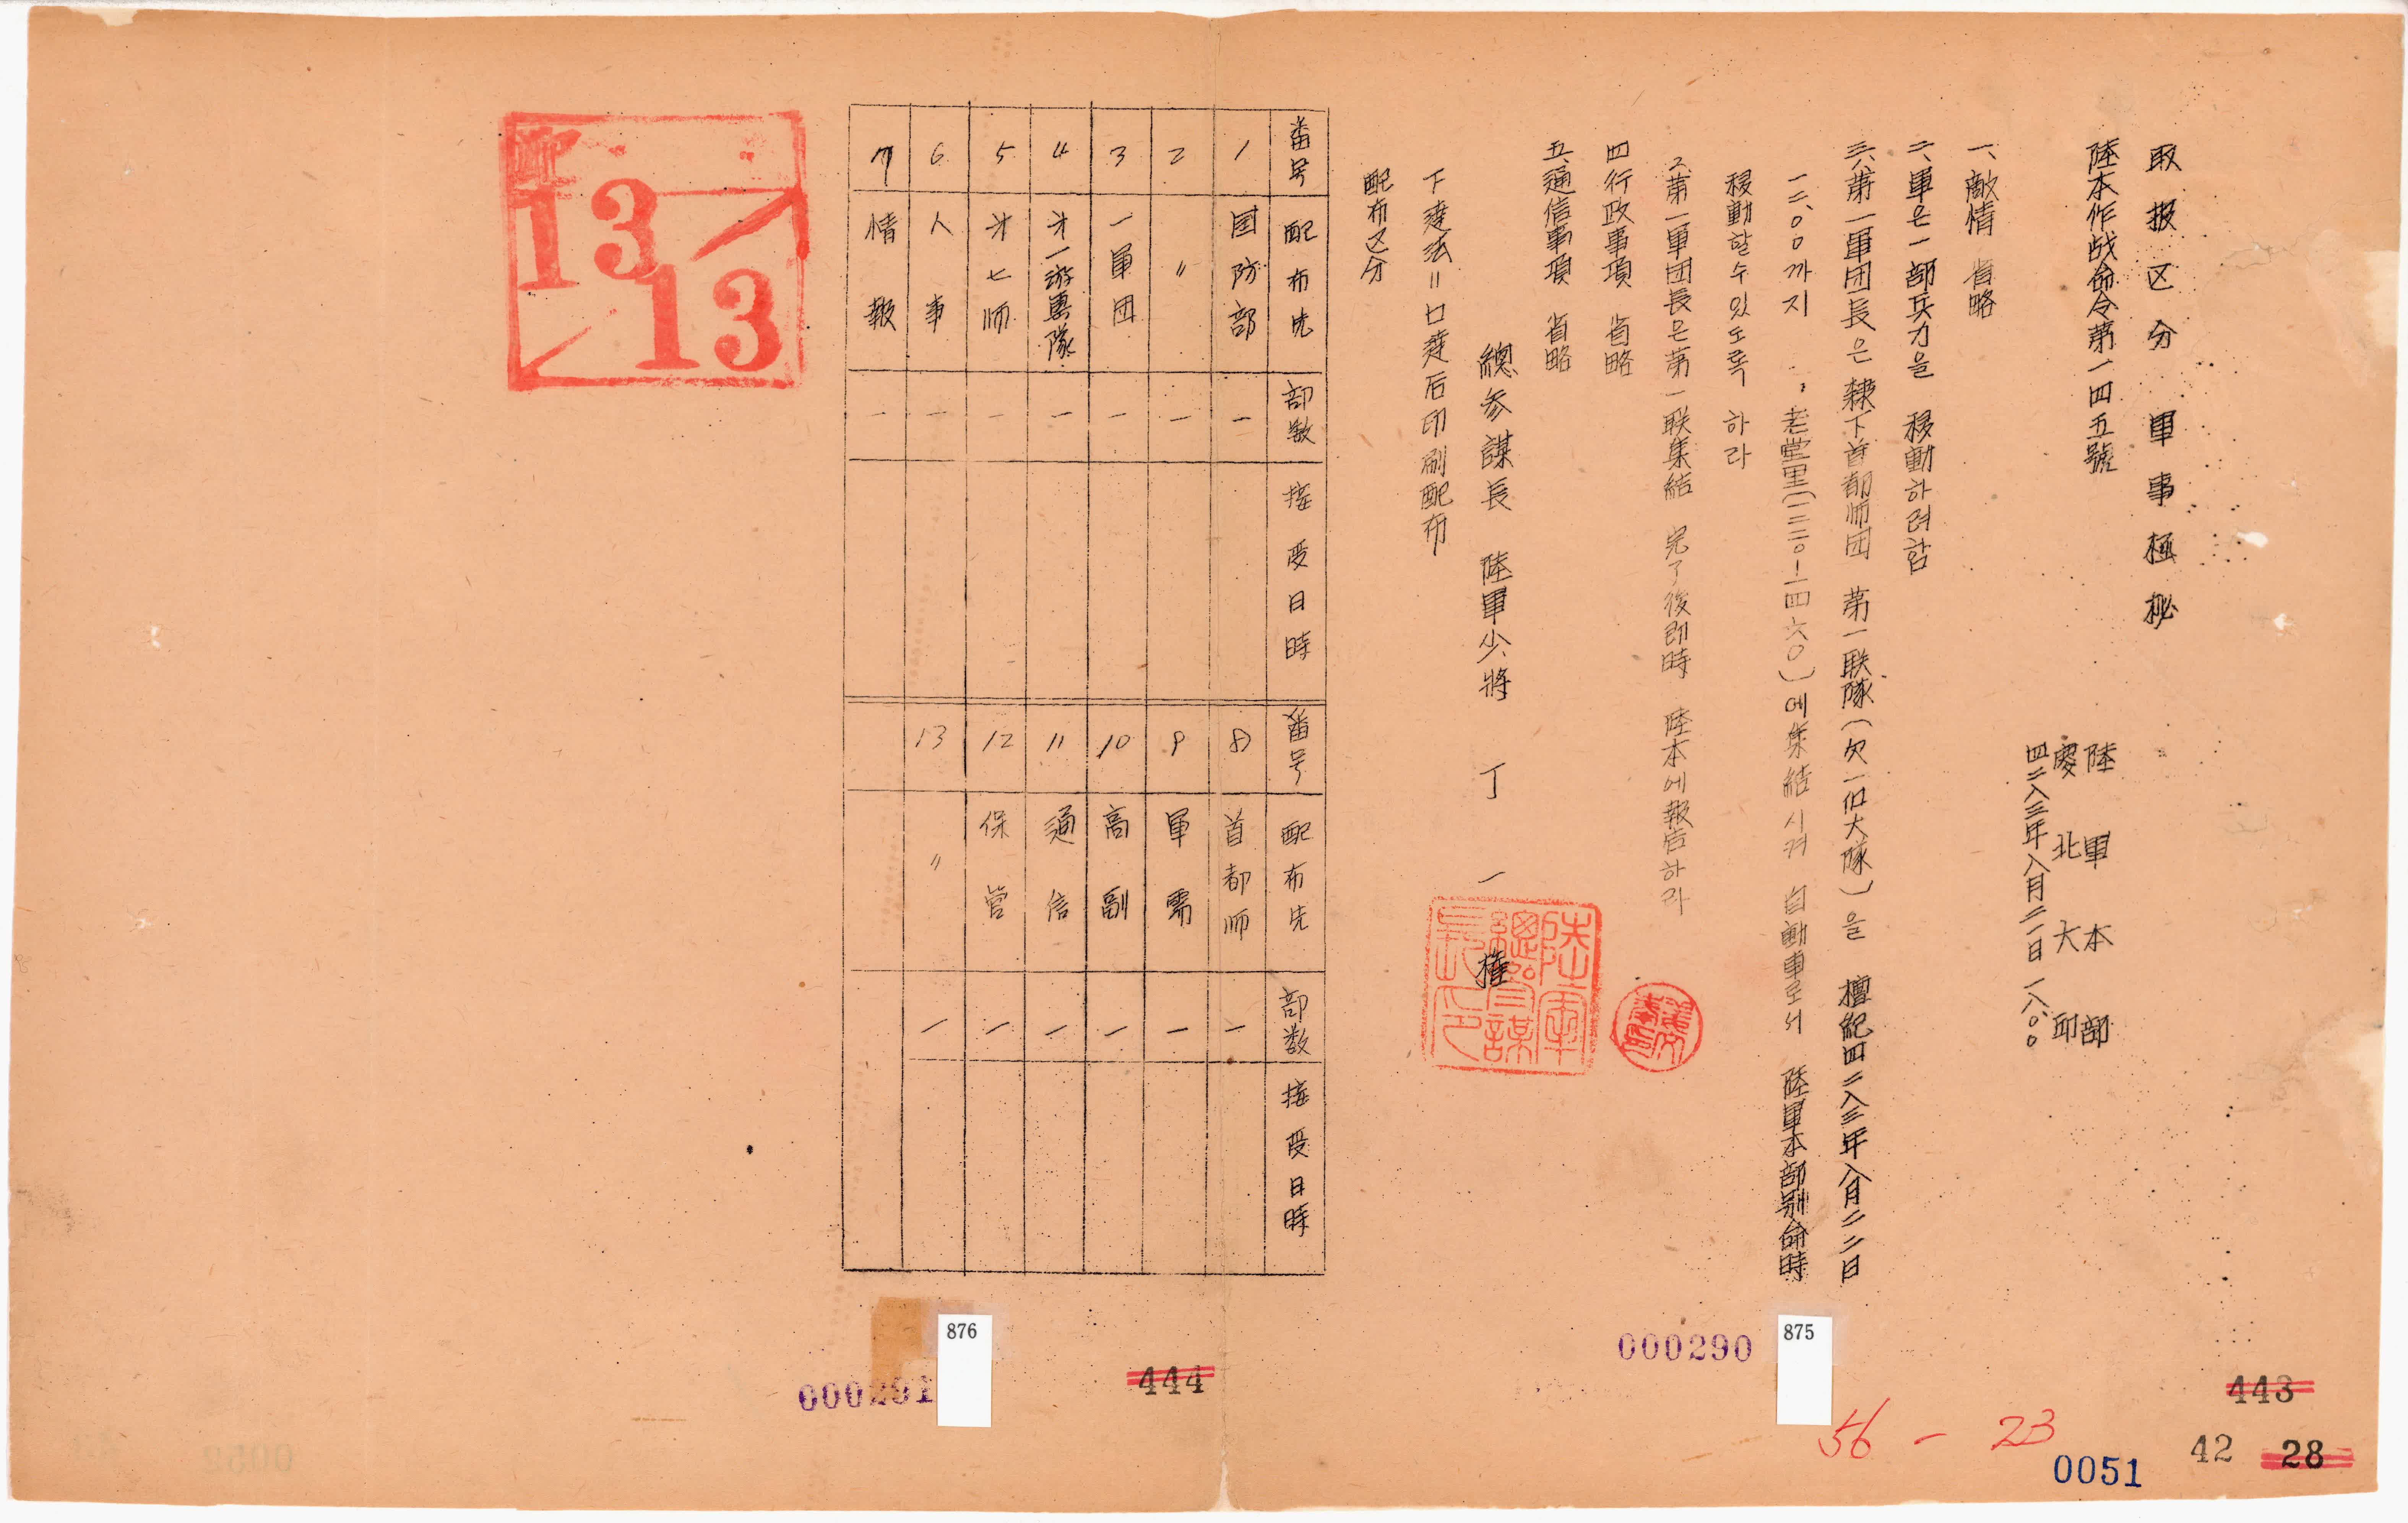 取扱区分 軍事極秘
陸本作战命令第一四五號
陸軍本部
慶北大邱
四二八三年八月二一日 一八:〇〇
一、敵情 省略
二、軍은 一部兵力을 移動하려함
三、1.第一軍団長은 隸下首都师団 第一联隊(欠一個大隊)을 檀紀四二八三年八月二二日
一二、〇〇까지 老堂里(一三三〇-一四六〇)에 集結시켜 自動車로서 陸軍本部別命時
移動할수있도록 하라
2.第一軍団長은 第一联集結 完了後即時 陸本에 報告하라
四行政事項 省略
五、通信事項 省略
總参謀長 陸軍少將 丁一權
陸軍總参謀長印
下達法=口達后印刷配布
配布区分
番号 配布先 部数 接受日時 番号 配布先 部数 接受日時
1 国防部 一 8 首都师 一
2 〃 一 9 軍需 一
3 一軍団 一 10 高副 一
4 才一游撃隊 一 11 通信 一
5 才七师 一 12 保管 一
6 人事 一 13 〃 一
7 情報 一
13/13
876
875
000290
000291
444
443
56-23
0051
42
28